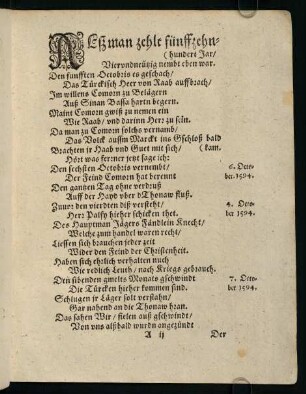 ALßman zehle fünffzehn-
(hundert Jar/
Viervndneützig nembt eben war.
Den funfften Octobris es geschach/
Das Türckisch Heer von Raab auffbrach/
Im willens Comorn zu Belägern
Auß Sinan Bassa hartn begern.
Maint Comorn gwiß zu nemen ein
Wie Raab/ vnd darinn Herr zu sein.
Da man zu Comorn solchs vernamb/
Das Volck aussm Marckt ins Gschloß bald
Brachten jr Haab vnd Guet mit sich/ (kam.
Hört was ferner jetzt sage ich:
Den sechsten Octobris vernembt/
6. Octo-
Der Feind Comorn hat berennt
ber. 1594.
Den gantzen Tag ohne verdruß
Auff der Hayd vber dThonaw fluß.
Zuuor den vierdten diß versteht/
4. Octo-
Herr Palfy hieher schicken thet.
ber 1594.
Des Hauptman Jägers Fändlein Knecht/
Welche zum handel waren recht/
Liessen sich brauchen jeder zeit
Wider den Feind der Christenheit.
Haben sich ehrlich verhalten auch
Wie redlich Leuth/ nach Kriegs gebrauch.
Den sibenden gmelts Monats gschwindt
7. Octo-
Die Türcken hieher kommen sind.
ber 1594.
Schlugen jr Läger solt verstahn/
Gar nahend an die Thonaw hran.
Das sahen Wir/ fielen auß gschwindt/
Von vns alßbald wurdn angezündt
A ij
Der